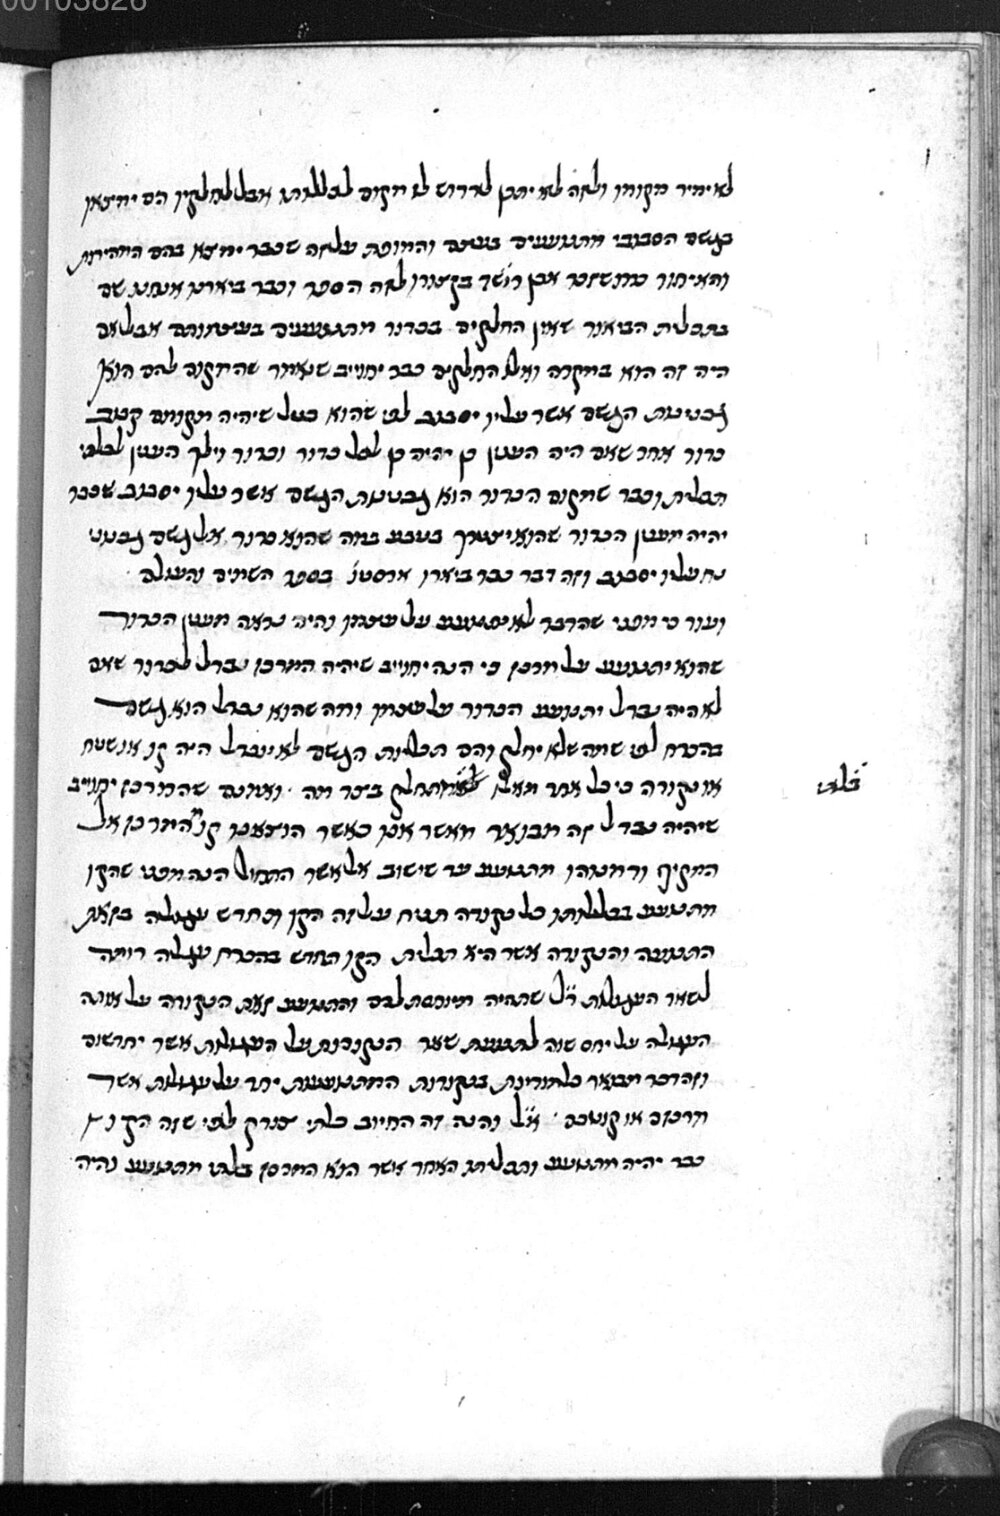 00103826
לא ימיר מקומו ולזה לא יתכן לדרוש לו מקום לכללותו אבל לחלקיו הם ימצאו
בגשם הסבובי מתנועעים בעצמם והמופת על זה שכבר ימצא בהם המהירות
והאיחור כמו שזכר אבן רשד בקצורו לזה הספר וכבר ביארנו אנחנו שם
בתכלית הביאור שאין החלקים בכדור מתנועעים בעצמותם אבל אם
היה זה הוא במקרה ואלו החלקים כבר יחוייב שנאמר שהמקום להם הוא
גבנינות הגשם אשר עליו יסבוב לפי שהוא בטל שיהיה מקומם קבוב
כדור אחר שאם היה הענין כן יהיה כן לכל כדור וכדור וילך הענין לבלתי
תכלית וכבר שמקום הכדור הוא גבנינות הגשם אשר עליו יסבוב שכבר
יהיה מענין הכדור שהוא יצטרך בטבע במה שהוא כדור אל גשם גבנוני
נח עליו יסבוב וזה דבר כבר ביארו ארסטו בספר השמים והעולם
ועוד כי מפני שהדבר לא יתנועע על עצמו והיה נראה מענין הכדור
שהוא יתנועע על מרכזו כי הנה יחוייב שיהיה המרכז נבדל לכדור שאם
לא היה נבדל יתנועע הכדור על עצמו ומה שהוא נבדל הוא גשם
בהכרח לפי שמה שלא יחלק והם תכליות הגשם לא יובדל היה קו או שטח
או נקודה כי כל אחד מאלו לא יתחלק ביכר מה ואולם שהמרכז יחוייב
בלתי
שיהיה נבדל זה מבואר מאשר אנו כאשר הוצאנו קו מהמרכז אל
המקיף ודמינוהו מתנועע עד שישוב אל אשר התחיל הנה מפני שהקו
מתנועע בכללותו כל נקודה תונח על זה הקו תחדש עגולה בזאת
התנועה והנקודה אשר היא תכלית הקו תחדש בהכרח עגולה דומה
לשאר העגולות ר״ל שתהיה מיוחסת להם והתנועע זאת הנקודה על אותה
העגולה על יחס שוה לתנועת שאר הנקודות על העגולות אשר יחדשום
וזה דבר מבואר כלומר מהנקודות המתנועעות יחד על עגולות אשר
מרכזם או קוטבם א״ל והנה זה החיוב בלתי צודק לפי שזה הקו
כבר יהיה מתנועע ותכליתו האחר אשר הוא המרכז בלתי מתנועע והיה